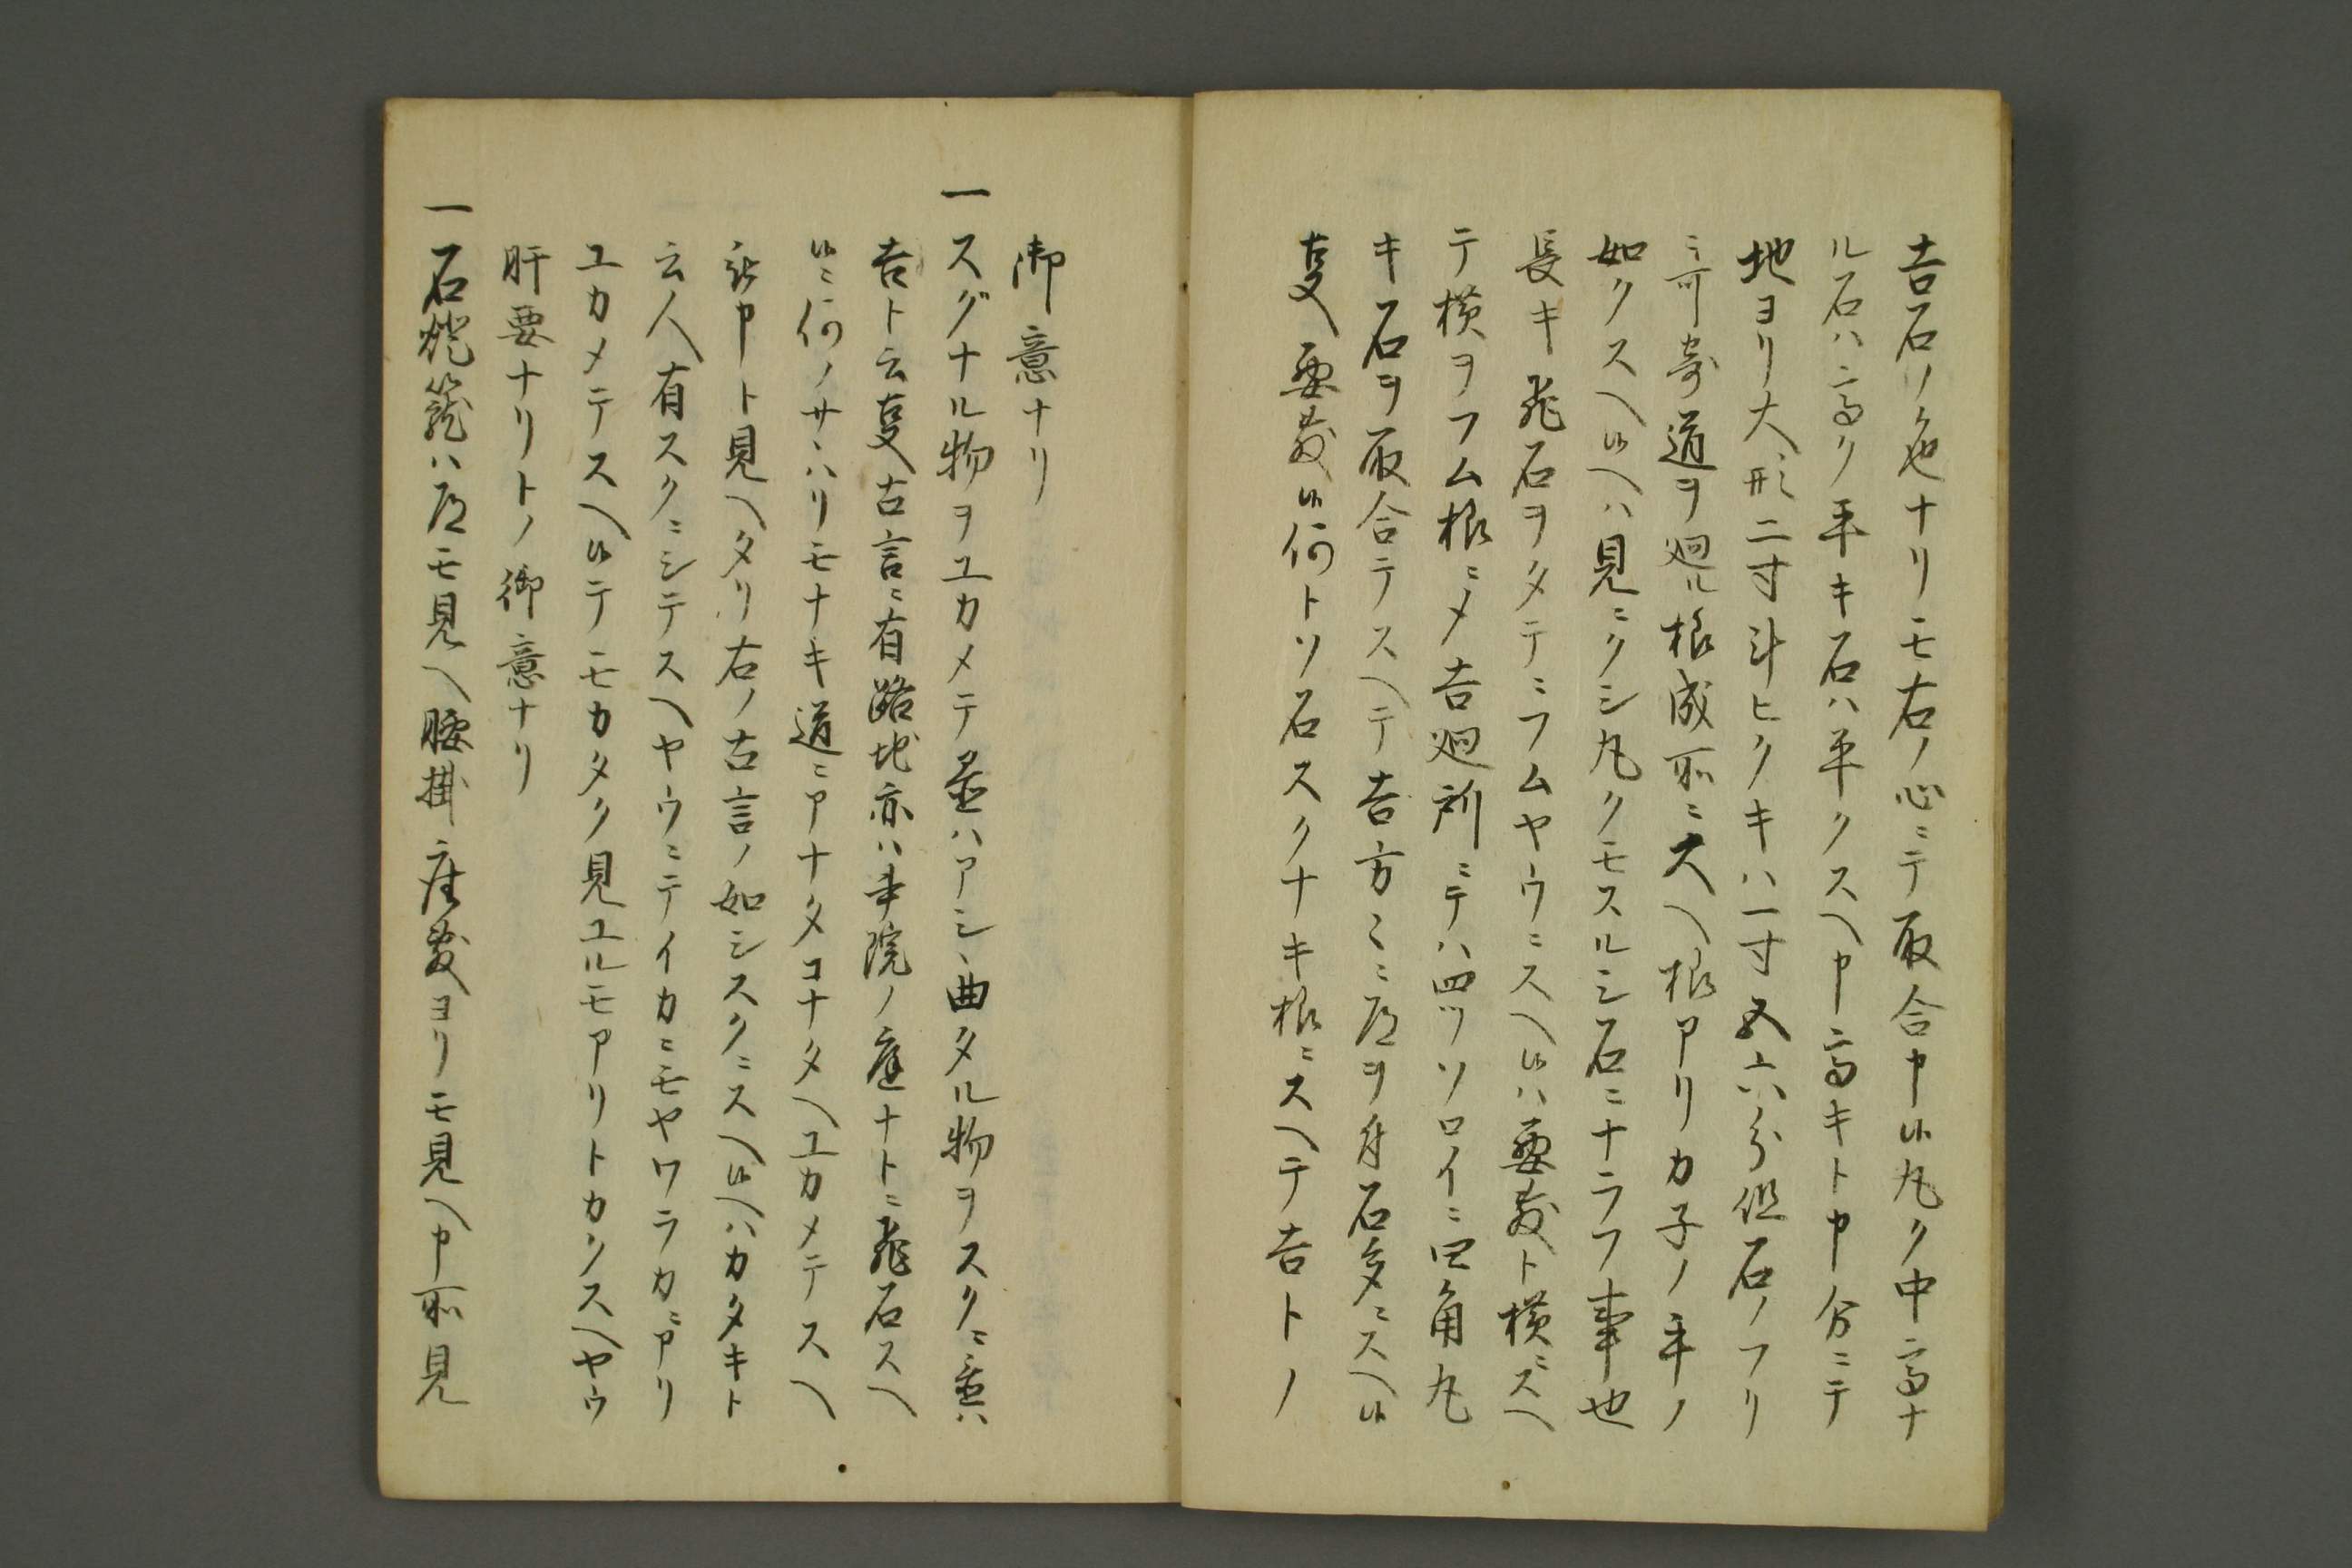 吉石ノ色ナリモ右ノ心ニテ取合申候丸ク中高ナ
ル石ハ高ク平キ石ハ平クスヘ申高キト申分ニテ
地ヨリ大形二寸斗ヒクキハ一寸五六分但石ノフリ
ニ可寄道ヲ廻ル様成所ニスヘ様アリカ子ノ手ノ
如クスヘ候ヘハ見ニクシ丸クモスルシ石ニナラフ事也
長キ飛石ヲタテニフムヤウニスヘ候ハ要数ト横ニスヘ
テ横ヲフム様ニメ吉廻所ニテハ四ツソロイニ四角丸
キ石ヲ取合テスヘテ吉方〻ニ道ヲ付石多ニスヘ候
事要数候何トソ石スクナキ様ニスヘテ吉トノ
御意ナリ
一スグナル物ヲユカメテ置ハアシヽ曲タル物ヲスクニ置ハ
吉ト云事古言ニ有路地亦ハ書院ノ庭ナトニ飛石スヘ
候ニ何ノサヽハリモナキ道ニアナタコナタヘユカメテスヘ
申ト見ヘタリ右ノ古言ノ如シスクニスヘ候ヘハカタキト
云人有スクニシテスヘヤウニテイカニモヤワラカニアリ
ユカメテスヘ候テモカタク見ユルモアリトカクスヘヤウ
肝要ナリトノ御意ナリ
一石燈籠ハ道モ見ヘ腰掛座敷ヨリモ見ヘ申所見